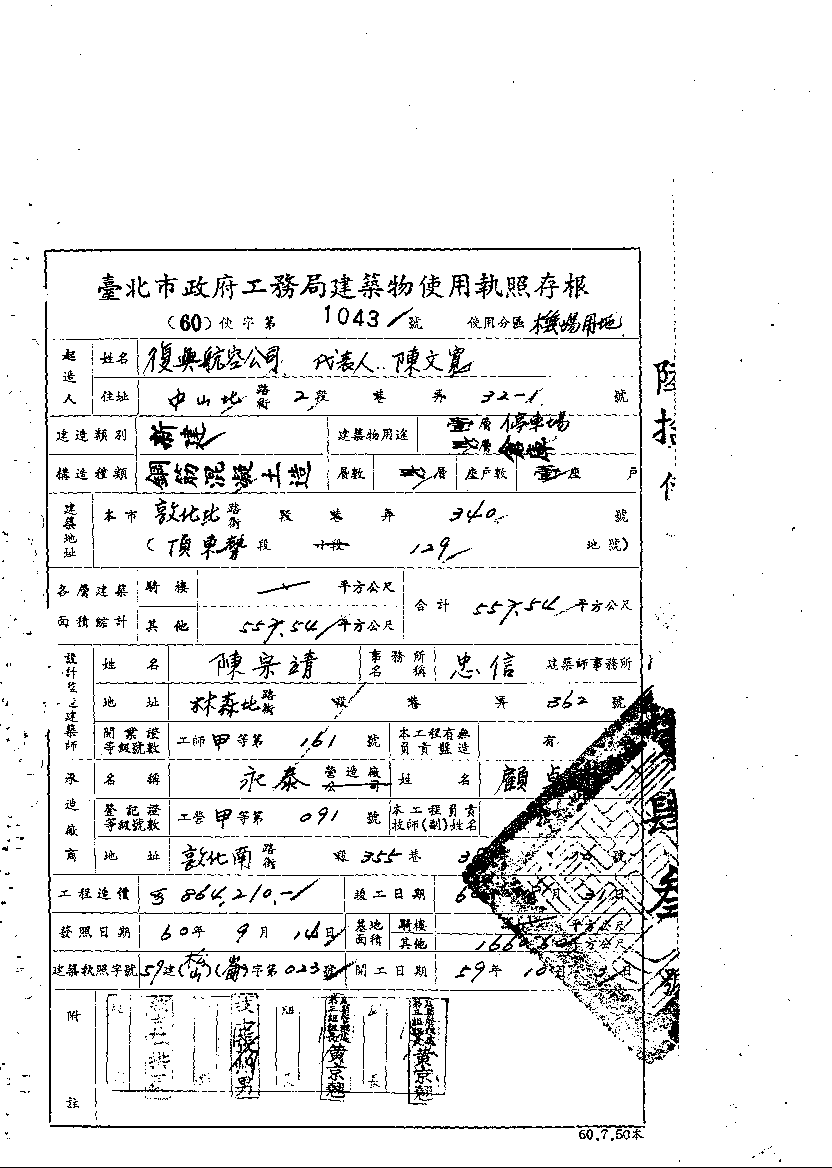 臺北市政府工務局建築物使用執照存根
(60)使字第 1043 號 使用分區 機場用地
起造人 姓名 復興航空公司 代表人:陳文寬
住址 中山北路街 2段 巷 弄 32-1 號
建造類別 新建 建築物用途 壹層 停車場
貳層
構造種類 鋼筋混凝土造 層數 貳層 座戶數 壹座 戶
建築地址 本市 敦化北路街 段 巷 弄 340 號
(頂東勢段 小段 129 地號)
各層建築面積總計 騎樓 平方公尺 合計 557.54 平方公尺
其他 557.54 平方公尺
設計監造建築師 姓名 陳宗靖 事務所名稱 忠信 建築師事務所
地址 林森北路街 段 巷 弄 362 號
開業證等級號數 工師甲等第 161 號 本工程有無負責監造 有
承造廠商 名稱 永泰 營造廠公司 姓名 顧
登記證等級號數 工營甲等第 091 號 本工程負責技師(副)姓名
地址 敦化南路街 段 355巷 號
工程造價 864,210.- 竣工日期 日
發照日期 60年 9月 14日 基地面積 騎樓 平方公尺
其他 平方公尺
建築執照字號 59建(松山)(崙)字第023號 開工日期 59年 10月 日
附註
黃京翹 黃京翹
60.7.50本
陸拾 肆叁 號